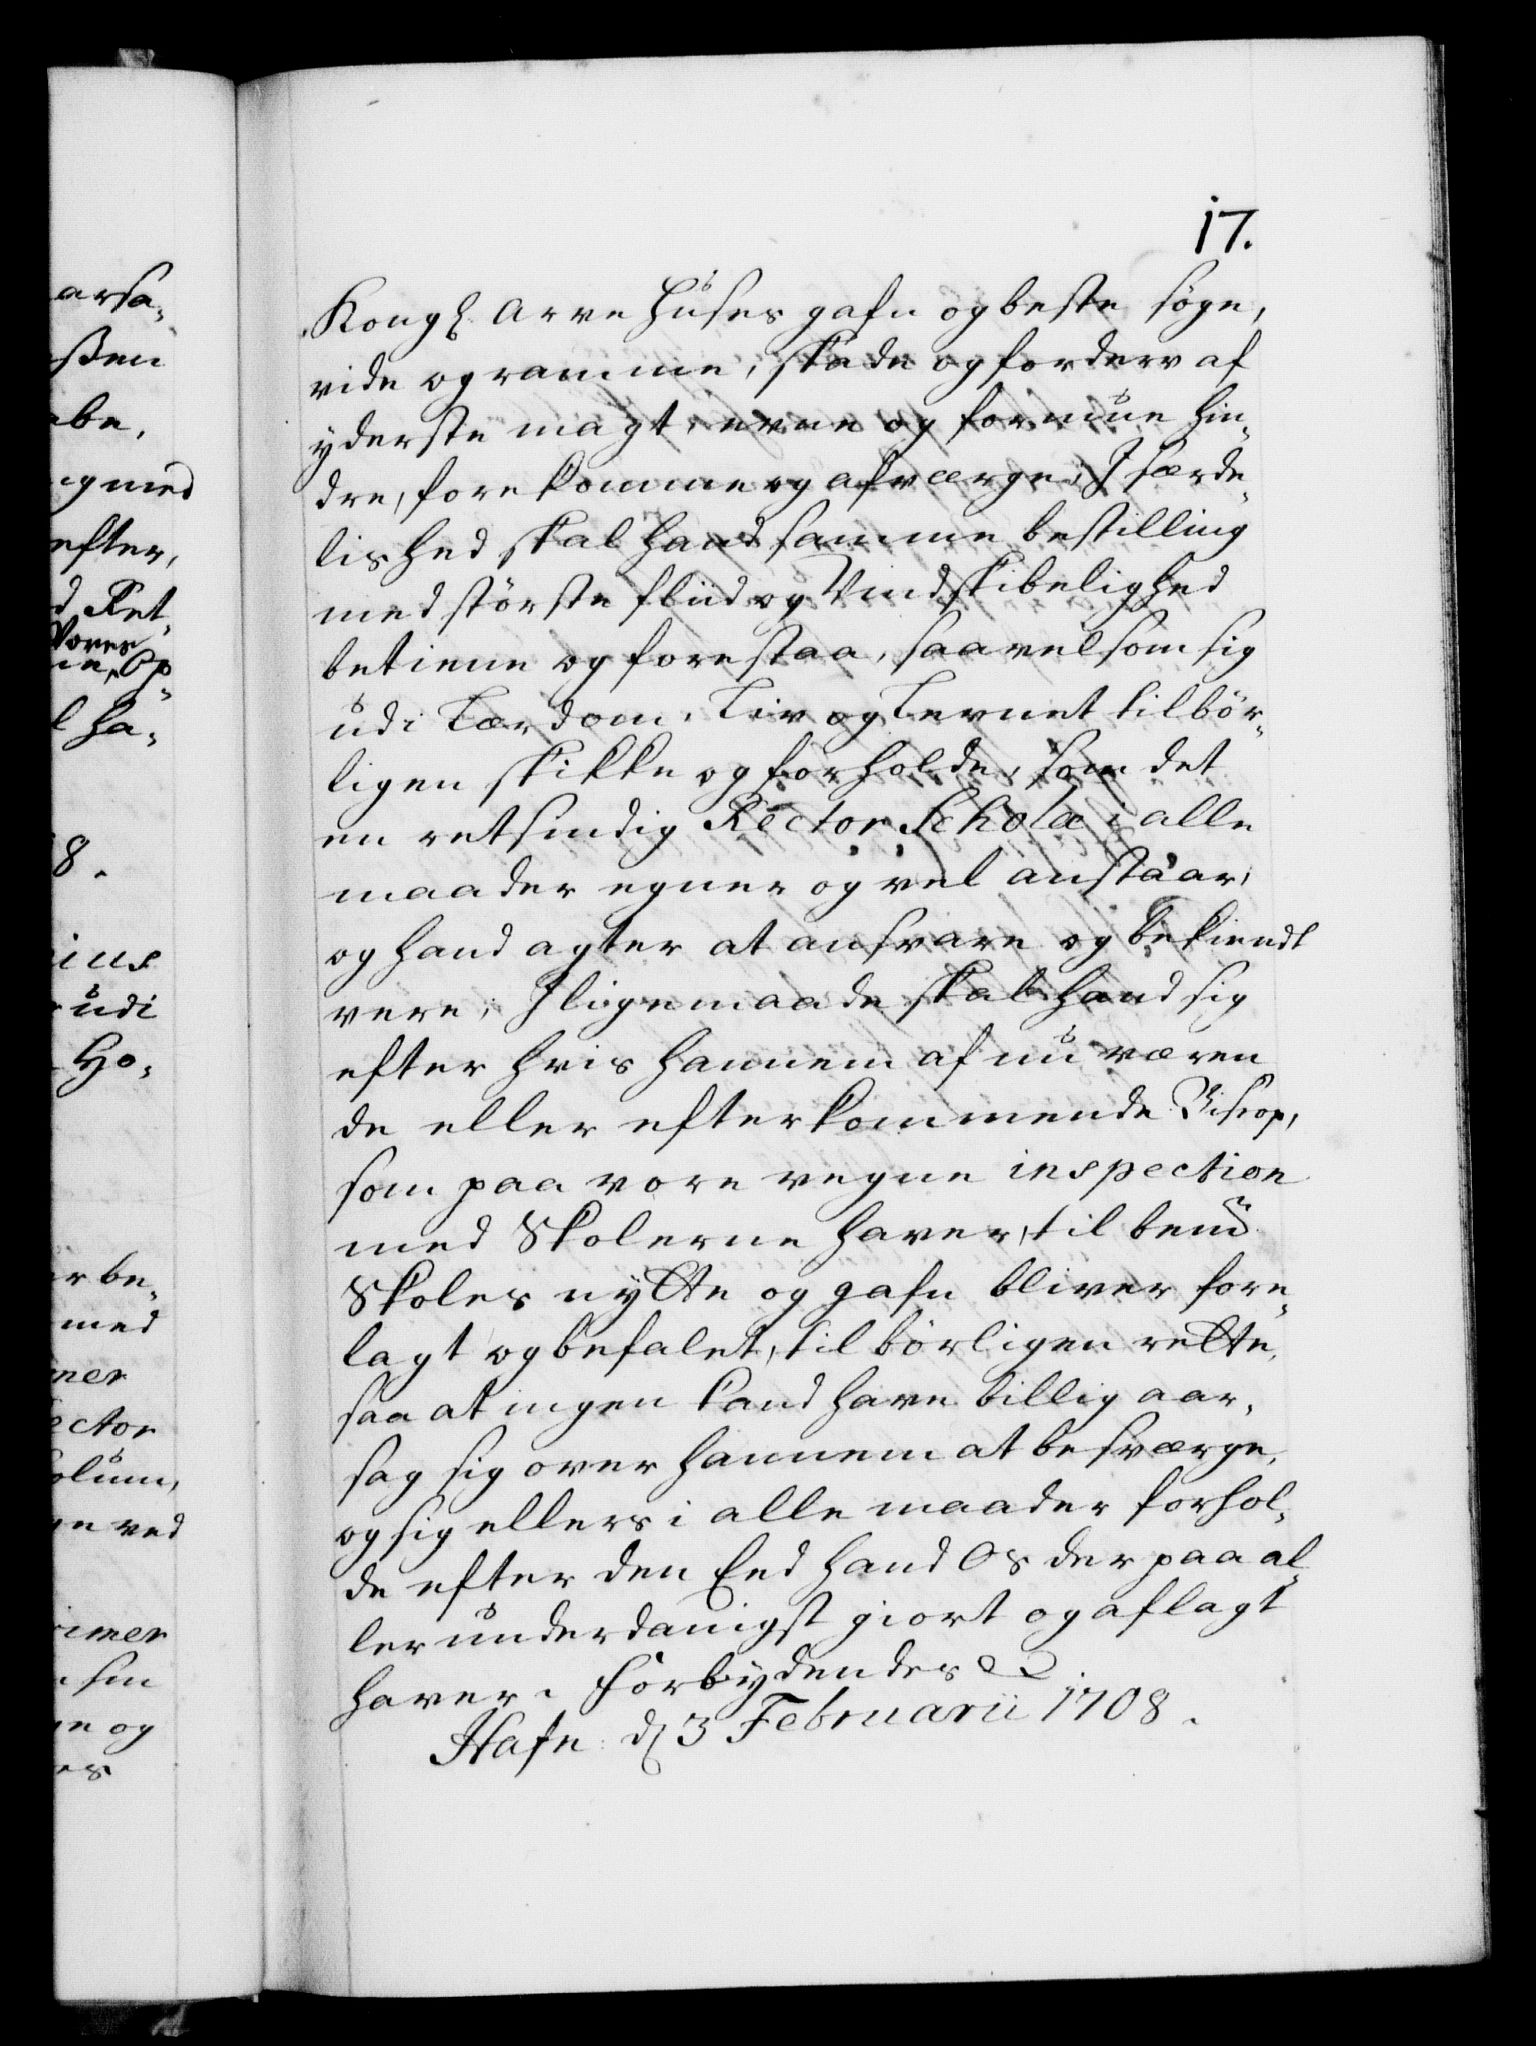 17.
Kongl. Arve Huses gafn og beste söge,
vide og ramme, skade og forderv af
yderste magt, evne og formue hin¬
dre, forekomme og afværge; I særde¬
lished skal hand samme bestilling
med störste fliid og Vindskibelighed
betiene og forestaa, saavelsom sig
udi Lærdom, Liv og Levnet tilbör¬
ligen skikke og forholde, som det
en retsindig Rector Scholæ i alle
maader egner og vel anstaar,
og hand agter at ansvare og bekiendt
vere; I ligemaade skal hand sig
efter hvis hannem af nu væren
de eller efterkommende Biscop,
som paa vore vegne inspection
med Skolerne haver, til bemte
Skoles nytte og gafn bliver fore¬
lagt og befalet, tilbörligen rette,
saa at ingen kand have billig aar¬
sag sig over hannem at besværge,
og sig ellers i alle maader forhol¬
de efter den Eed hand Os der paa al¬
ler underdanigst giort og aflagt
haver. Forbydendes &
Hafn: d 3 Februarii 1708.
arsa¬
ssen
abe,
og med
efter,
d Ret¬
Vores
ne, Op¬
l ha¬
8.
ius
udi
Ho¬
r be¬
med
mer
ector
olum,
ge ved
imer
sin
ge og
es